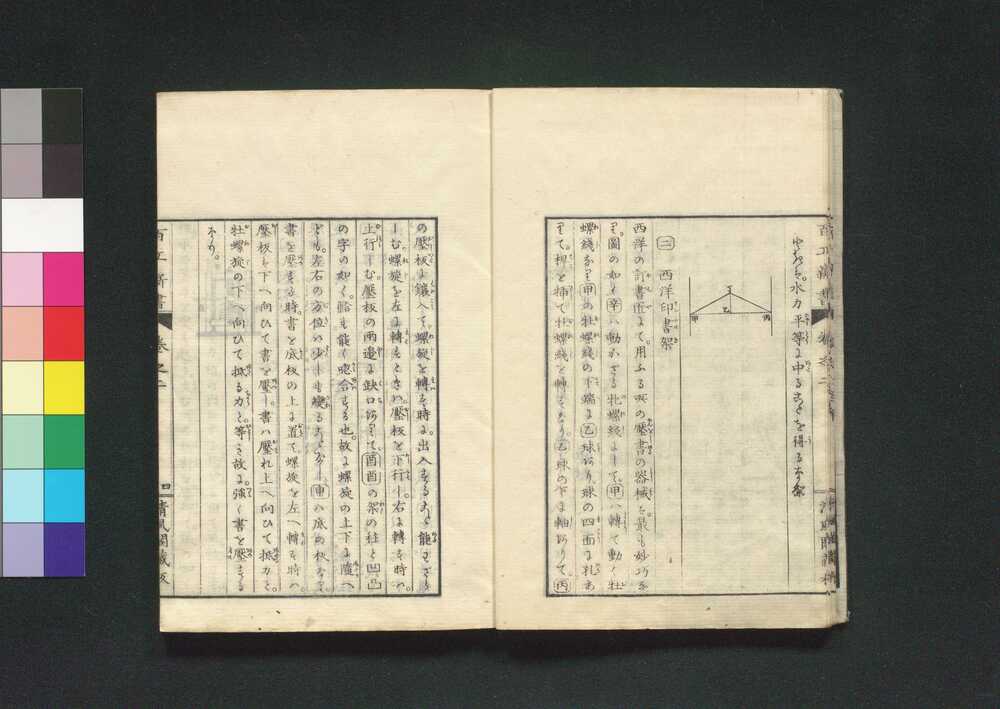 ゆがめず。水力平等に中ることを得るなり
丁
乙
甲
丙
二 西洋印書架
西洋の訂書匠にて。用ふる所の壓書の器械を。最も妙巧な
り。圖の如く辛ハ動かざる牝螺綫にして。甲ハ轉て動く牡
螺綫なり甲の牡螺綫の下端に乙球あり球の四面に孔あ
りて。桿を挿て牡螺綫を轉ずなり。乙球の下に軸ありて。丙
の壓板に鑲入て。螺旋を轉る時に。出入すること能はざら
しむ。螺旋を左に轉るときハ。壓板を下行し右に轉る時ハ。
上行しむ。壓板の両邊に缺口ありて酉酉の架の柱と凹凸
の字の如く。能く吻合する也。故に螺旋の上下に隨へ
ども。左右の方位ハ少しも變ることなし。申ハ底の板なり。
書を壓する時。書を底板の上に置て。螺旋を左へ轉る時ハ。
壓板も下へ向ひて書を壓し。書ハ壓れ上へ向ひて抵力と。
牡螺旋の下へ向ひて抵る力と。等き故に。強く書を壓する
なり。
百工齊書 卷之二
四 清風閣藏板